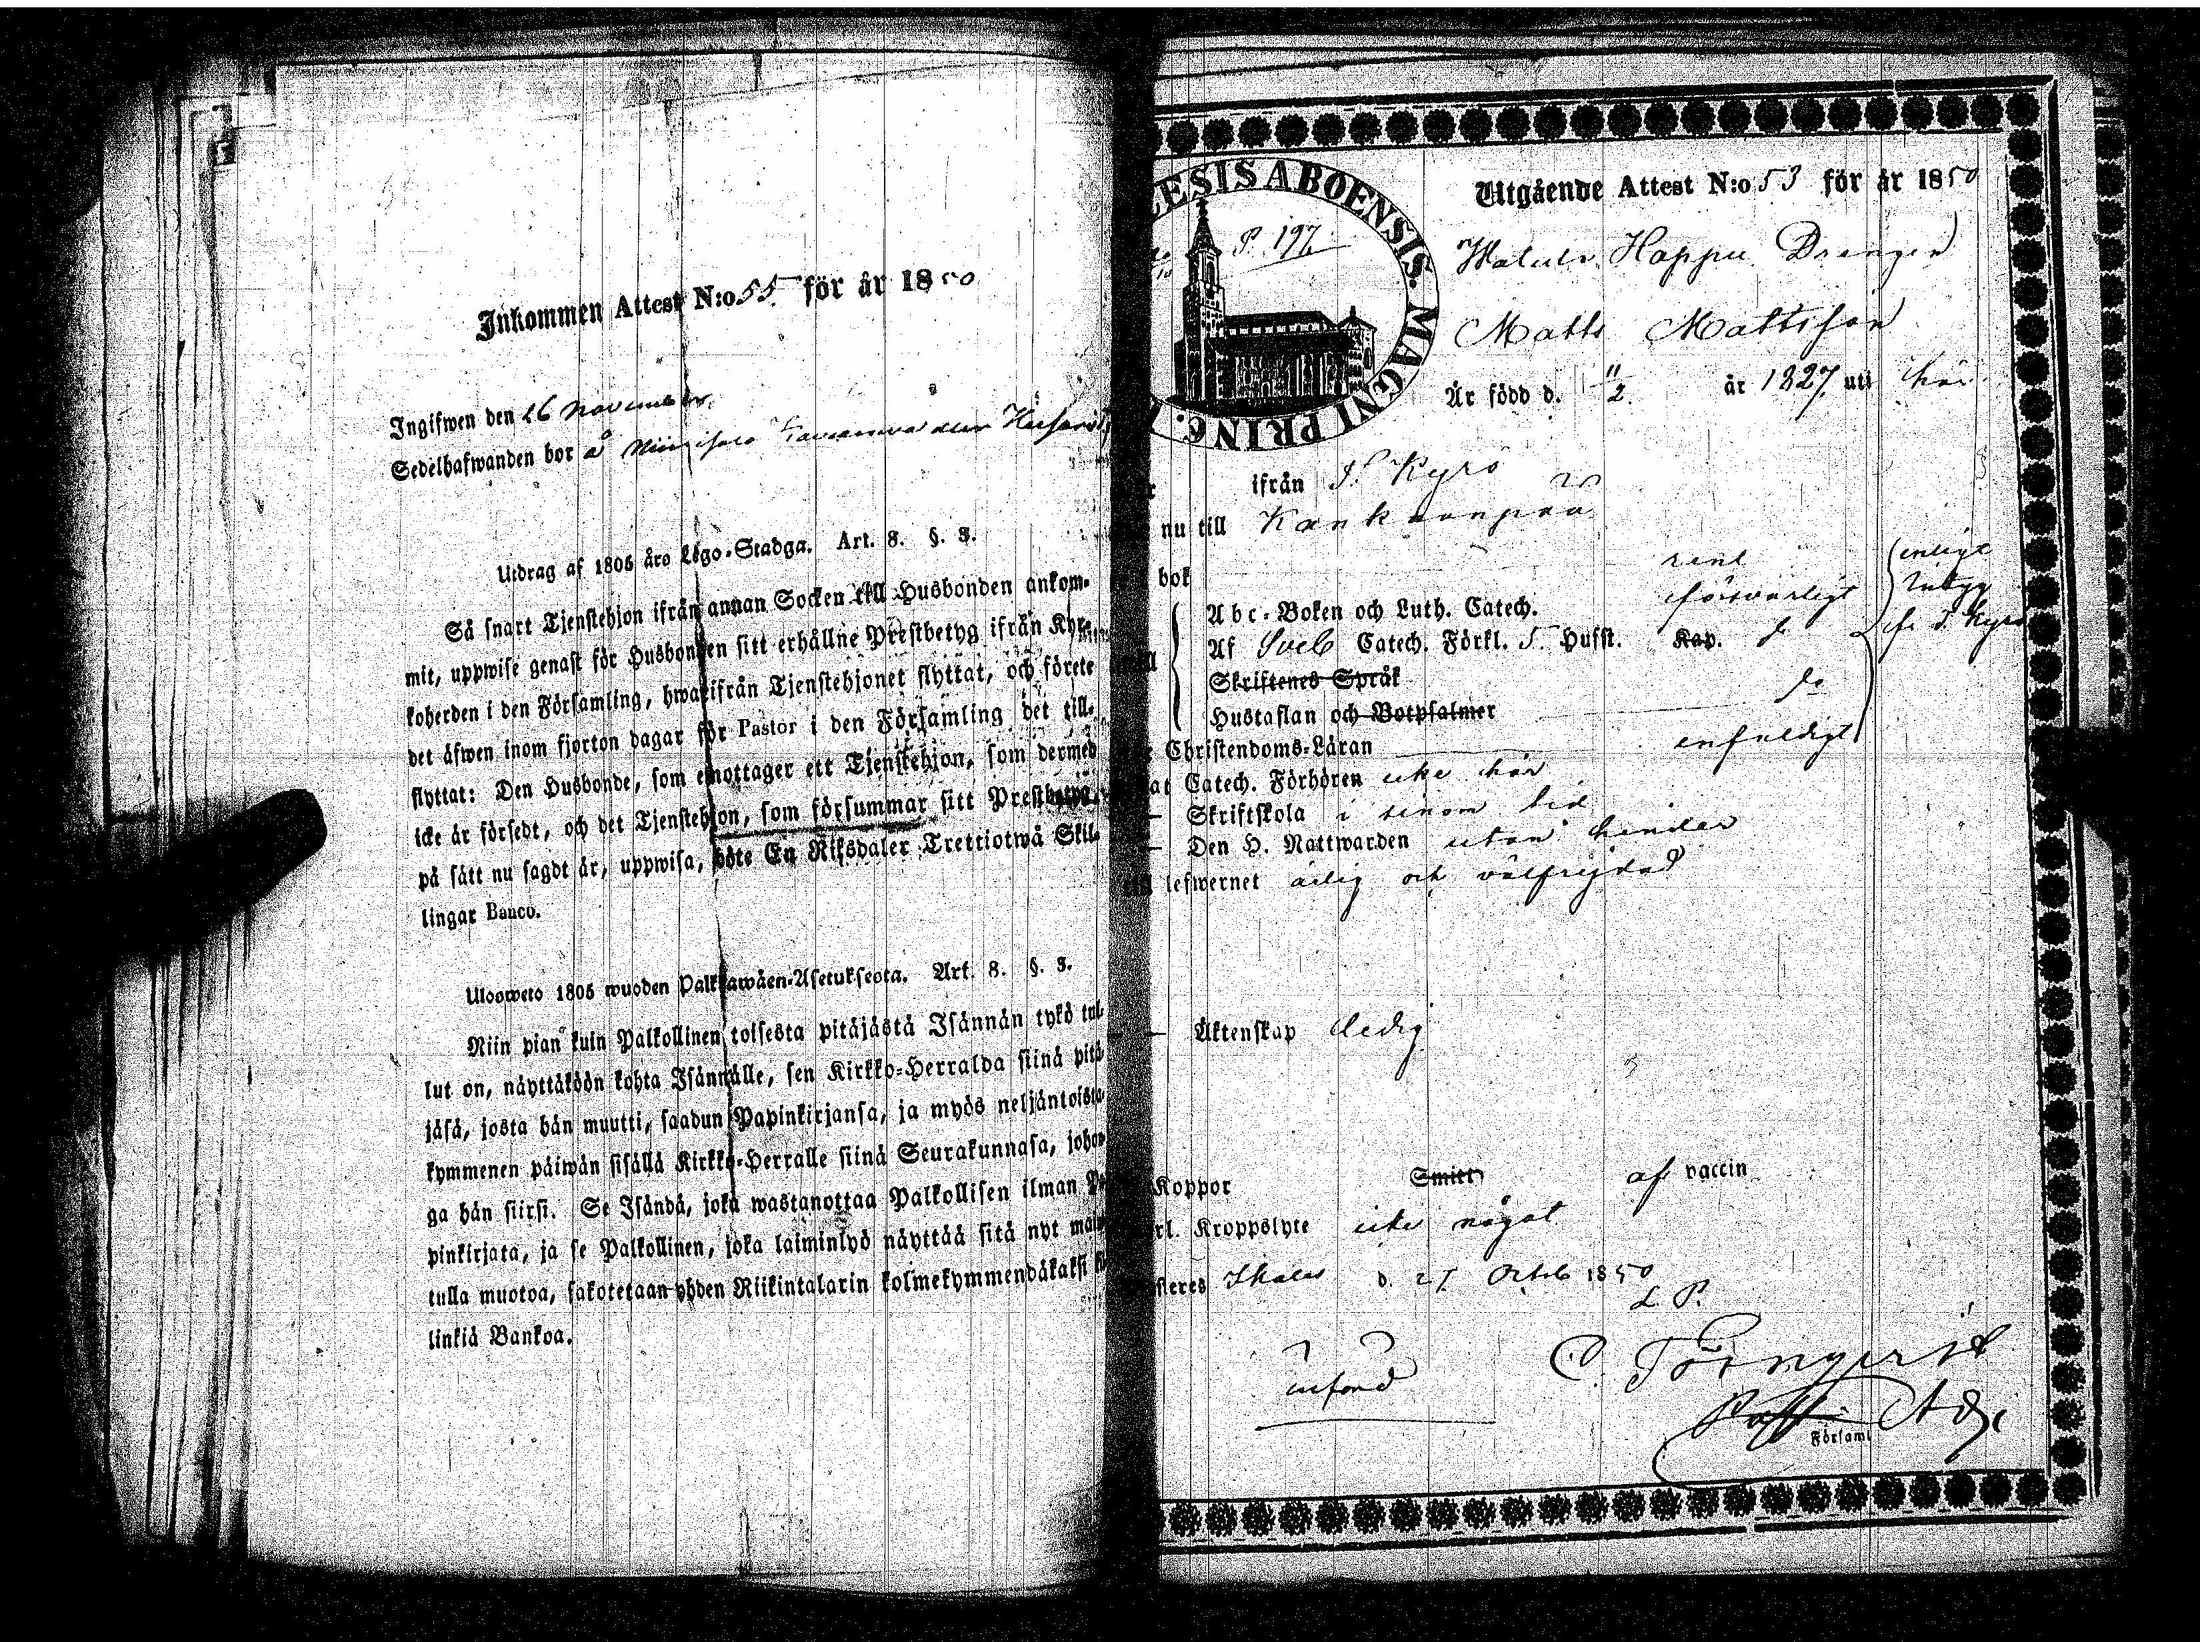 Inkommen Attest N:o 55 för år 1850
Ingifwen den 26 November
Sedelhafwanden bor å
Utdrag af 1805 års Lego-Stadga. Art. 8. §. 3.
Så snart Tjenstehjon ifrån annan Socken till Husbonden ankom-
mit, uppwise genast för Husbonden sitt erhållne Prestbetyg ifrån Kyr-
koherden i den Församling, hwarifrån Tjenstehjonet flyttat, och förete
det äfwen inom fjorton dagar för Pastor i den Församling det till-
flyttat: Den Husbonde, som emottager ett Tjenstehjon, som dermed
icke är försedt, och det Tjenstehjon, som försummar sitt Prestbetyg,
på sätt nu sagdt är, uppwisa, böte En Riksdaler Trettiotwå Skil-
lingar Banco.
Ulosweto 1805 wuoden Palkkawäen-Asetuksesta. Art. 8. §. 3.
Niin pian kuin Palkollinen toisesta pitäjästä Isännän tykö tul-
lut on, näyttäköön kohta Isännälle, sen Kirkko-Herralda siinä pitä-
jäsä, josta hän muutti, saadun Papinkirjansa, ja myös neljäntoista-
kymmenen päiwän sisällä Kirkko-Herralle siinä Seurakunnasa, johon-
ga hän siirsi. Se Isändä, joka wastanottaa Palkollisen ilman Pa-
pinkirjata, ja se Palkollinen, joka laiminlyö näyttää sitä nyt mai
tulla muotoa, sakotetaan yhden Riikintalarin kolmekymmendäkaksi
linkiä Bankoa.
ESIS ABOENSIS. MAGNI PRINC.
P. 197
Utgående Attest N:o 53 för år 1850
Happu Drengen
Matts Mattsson
Är född d. 11/2 år 1827 uti här
ifrån I. Kyrö
nu till Kankaanpää
bok rent
Abc-Boken och Luth. Catech. försvarligt
Af Sveb Catech. Förkl. 5 Husst. Kap. do
enligt
betyg
fr. I. Kyrö
Skriftenes Språk
Hustaflan och Botpsalmer do
Christendoms-Läran enfaldigt
at Catech. Förhören icke här
Skriftskola i sinom tid
Den H. Nattwarden utan hinder
lefwernet ärlig och välfrejdad
Äktenskap ledig
Koppor Smitt af vaccin
rl. Kroppslyte icke något
steres Ikalis d. 25 Octob 1850
L. P.
C. Törnqvist
Past. Adj.
Församl